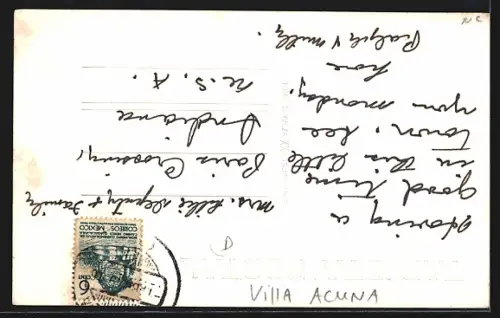 Having a
good time
in this little
town, see
you monday.
love
Ralph & Milly.
Mrs. Lillie Deputy & Family
Paris Crossing,
Indiana
U. S. A.
CORREOS MEXICO
6
D
VillA ACUNA